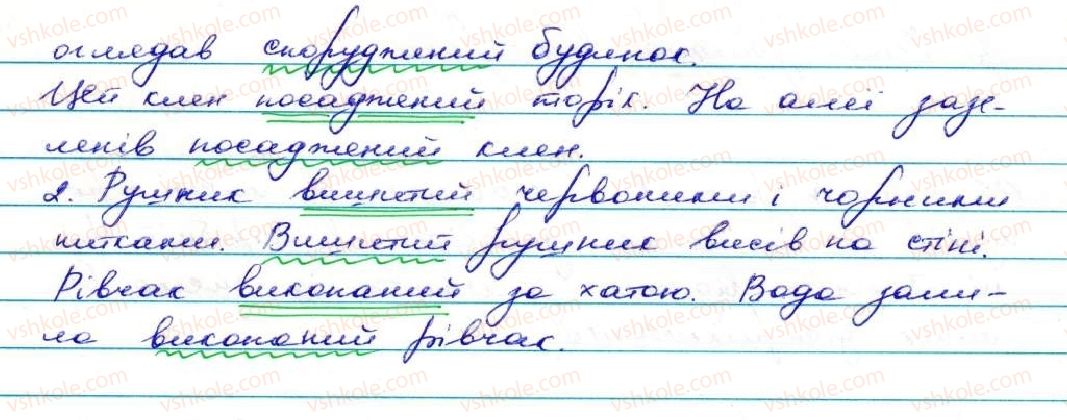 оглядав споруджений будинок.
Цей клен посаджений торік. На алеї зазе-
ленів посаджений клен.
2. Рушник вишитий червоними і чорними
нитками. Вишитий рушник висів на стіні.
Рівчак викопаний за хатою. Вода зали-
ла викопаний рівчак.